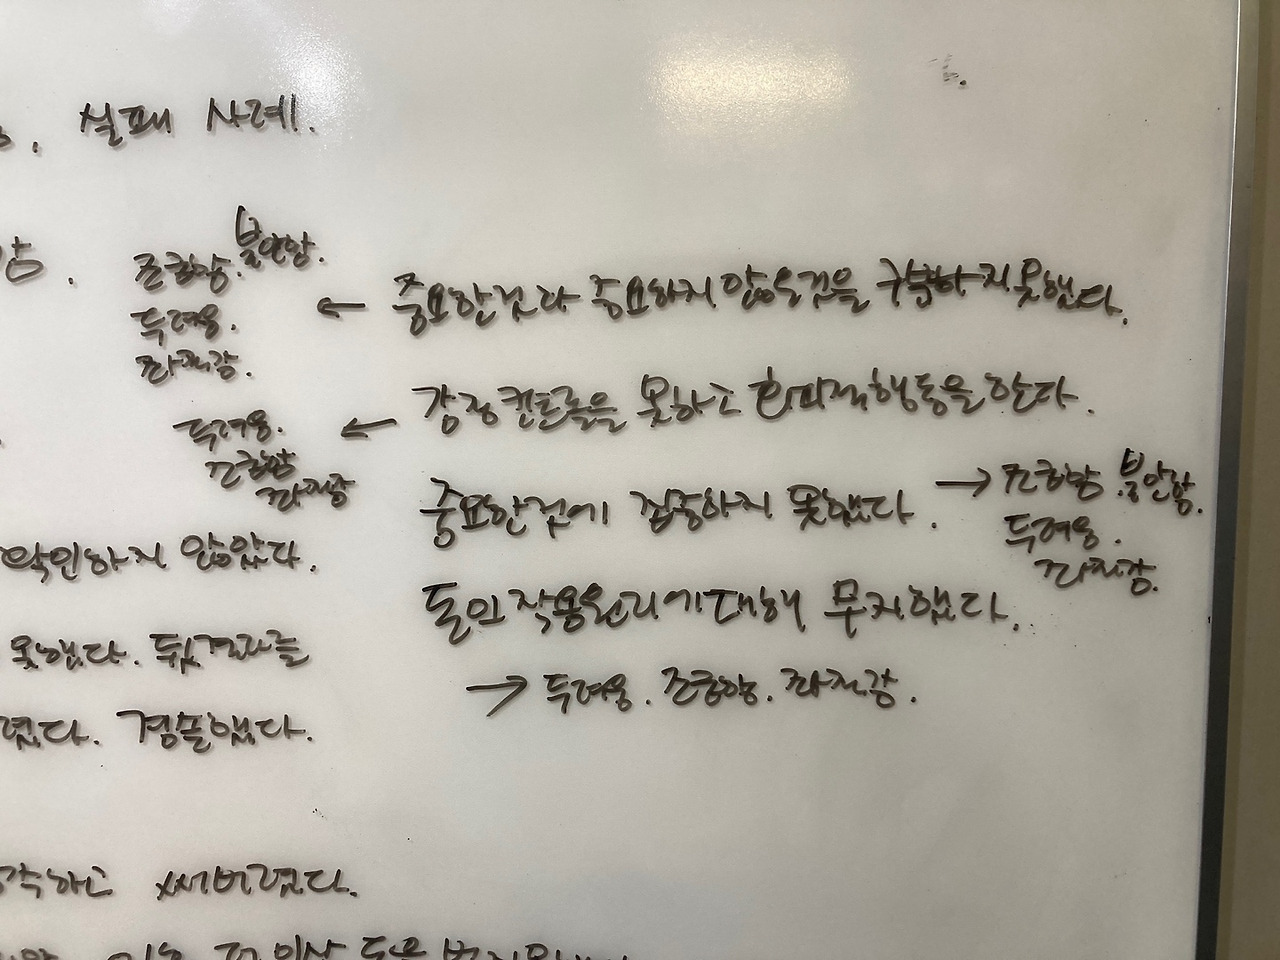 실패 사례.
조급함. 불안함.
두려움.
좌절감.
← 중요한것과 중요하지 않은것을 구분하지 못했다.
← 감정 컨트롤을 못하고 회피적 행동을 한다.
두려움.
조급함
좌절감
중요한것에 집중하지 못했다. → 조급함. 불안함.
두려움.
좌절감.
돈의 작용원리에 대해 무지했다.
→ 두려움. 조급함. 좌절감.
확인하지 않았다.
못했다. 뒷결과를
경솔했다.
써버렸다.